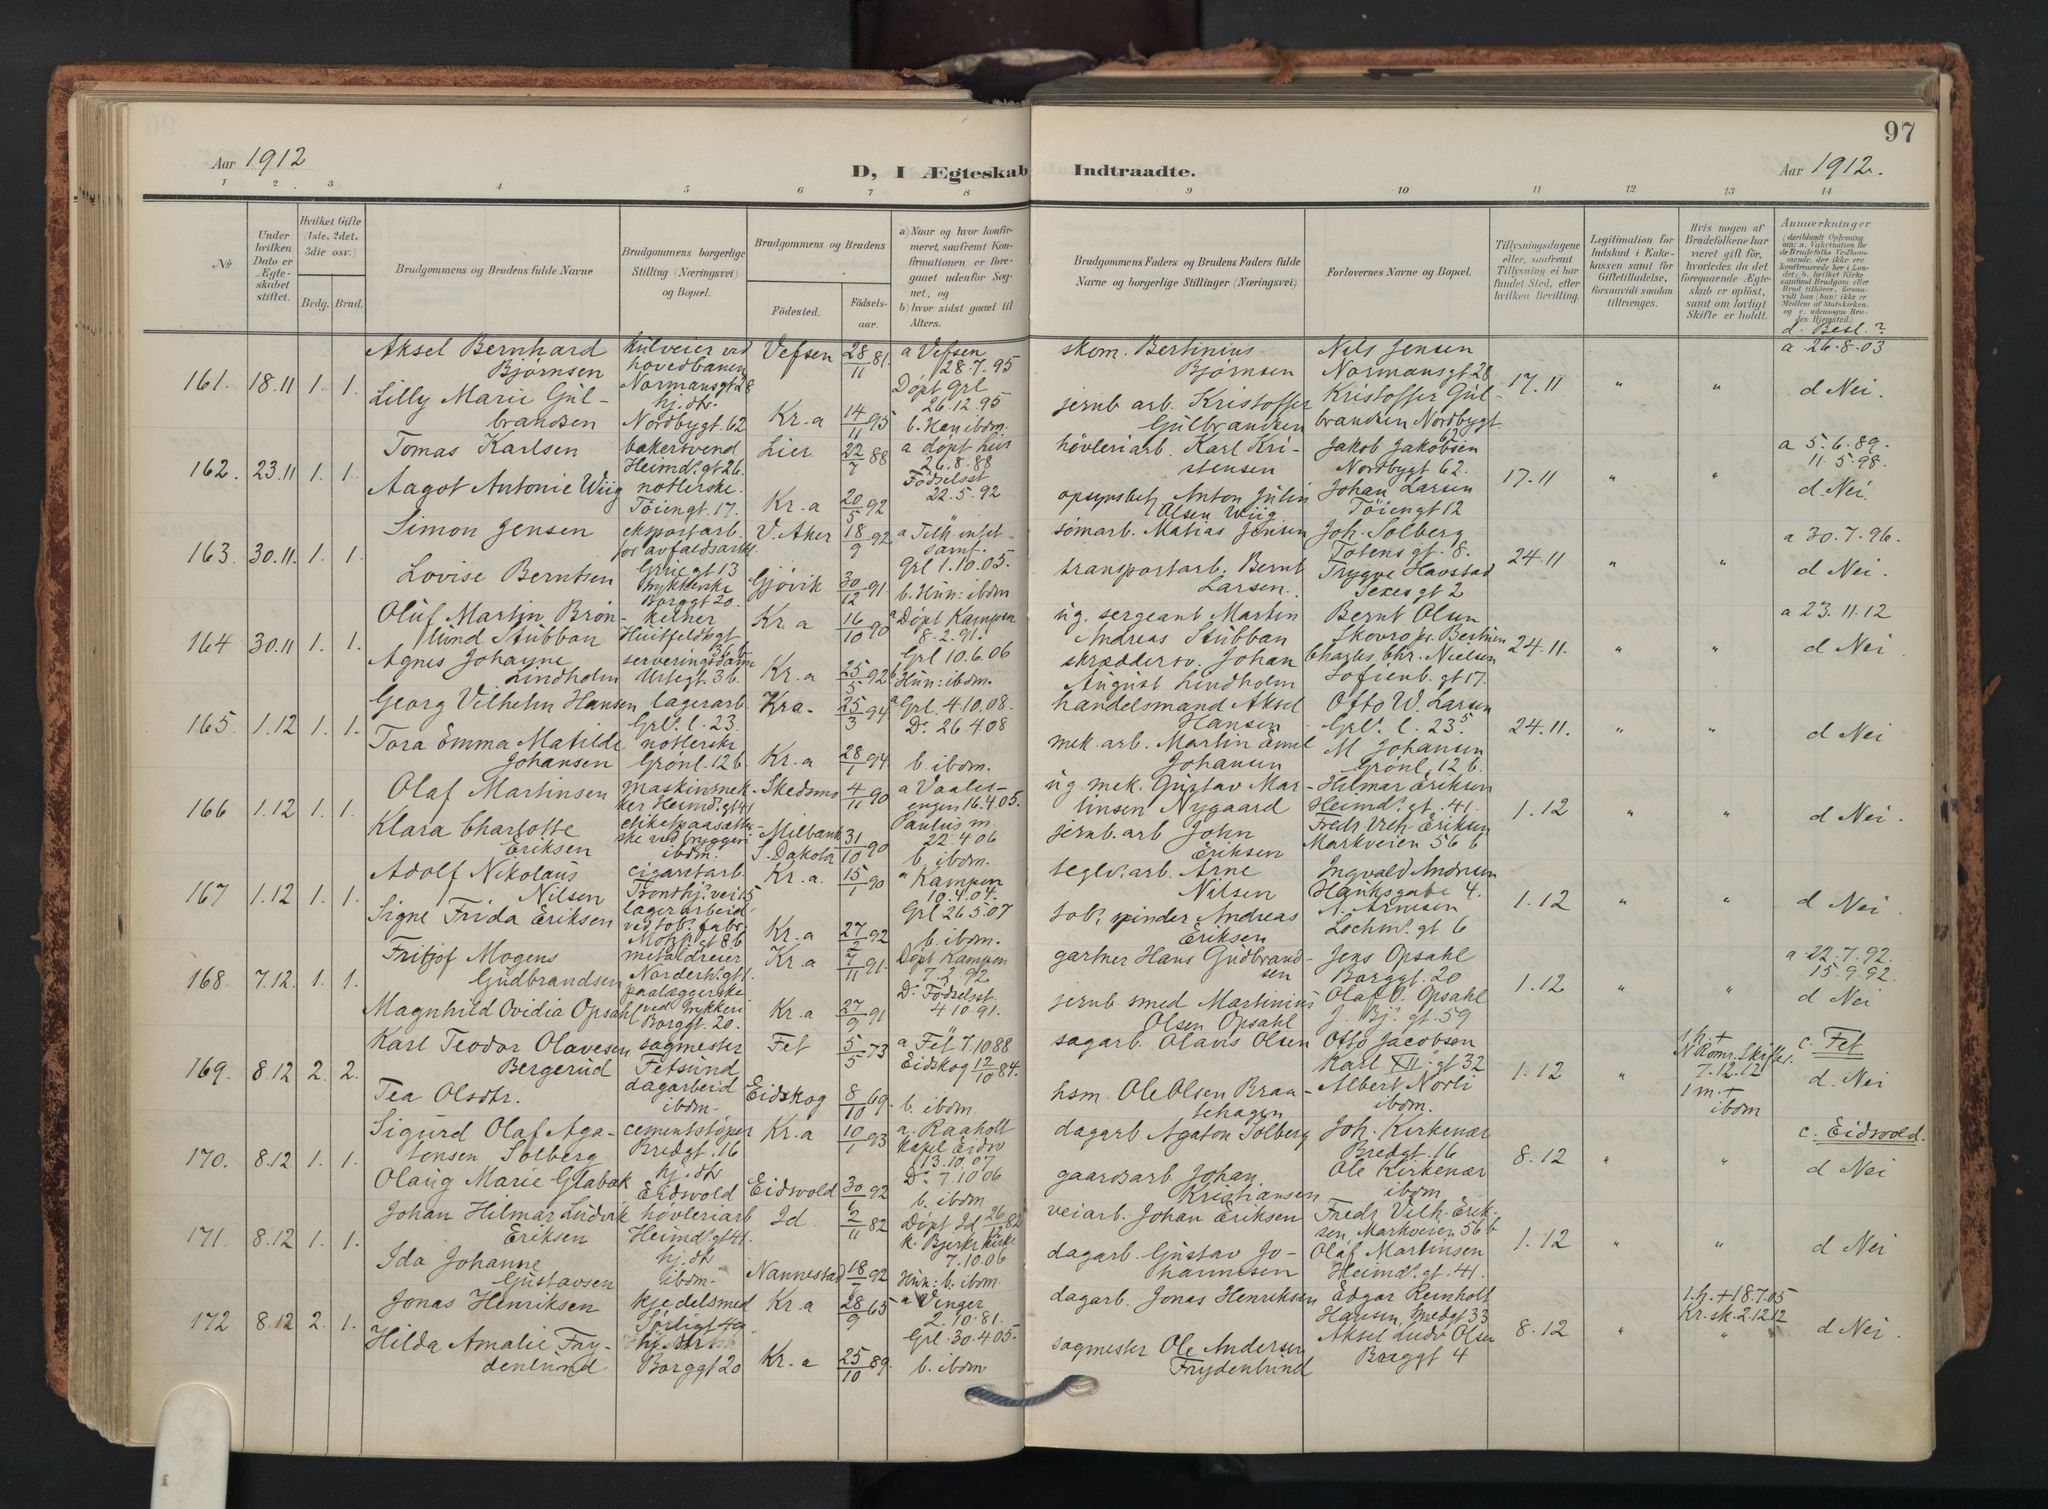 97
Aar 1912
D, I Ægteskab Indtraadte.
Aar 1912.
1 2 3 4 5 6 7 8 9 10 11 12 13 14
№
Under hvilken Dato er Ægteskabet stiftet.
Hvilket Gifte (1ste, 2det, 3die osv.)
Brdg. Brud.
Brudgommens og Brudens fulde Navne
Brudgommens borgerlige Stilling (Næringsvei) og Bopæl.
Brudgommens og Brudens
Fødested.
Fødsels-aar.
a) Naar og hvor konfirmeret, saafremt Konfirmationen er foregaaet udenfor Sognet, og
b) hvor sidst gaaet til Alters.
Brudgommens Faders og Brudens Faders fulde Navne og borgerlige Stillinger (Næringsvei)
Forlovernes Navne og Bopæl.
Tillysningsdagene eller, saafremt Tillysning ei har fundet Sted, efter hvilken Bevilling.
Legitimation for Indskud i Enkekassen samt for Giftetilladelse, forsaavidt saadan tiltrænges.
Hvis nogen af Brudefolkene har været gift, hvorledes da det foregaaende Ægteskab er opløst, samt om lovligt Skifte er holdt.
Anmærkninger
d. Besl.?
161. 18.11 1. 1.
Aksel Bernhard Bjørnsen
kulveier ved hovedbanen Normansgt 28
Vefsen 28/11 81
a Vefsen 28.7.95
skom. Bertinius Bjørnsen
Nils Jensen Normansgt 28
17.11 " "
a 26.8.03
d Nei.
Lilly Marie Gulbrandsen
hj. dtr. Nordbygt 62
Kr.a 14/11 95
Døpt Grl 26.12.95 b. Hun ibdm.
jernb arb. Kristoffer Gulbrandsen
Kristoffer Gulbrandsen Nordbygt 62
162. 23.11 1. 1.
Tomas Karlsen
bakersvend Heimd. gt 26.
Lier 22/7 88
a døpt Lier 26.8.88
høvleriarb. Karl Kristensen
Jakob Jakobsen Nordbygt 62.
17.11 " "
a 5.6.89.
11.5.98.
d. Nei
Aagot Antonie Wiig
notlerske. Tøiengt. 17.
Kr.a 20/5 92
Fødselsst 22.5.92
opsynsbetj Anton Julin Olsen Wiig
Johan Larsen Tøiengt 12
163. 30.11 1. 1.
Simon Jensen
eksportarb. for avfaldsartkl. Grüegt 13
V. Aker 18/9 92
sømarb. Matias Jensen
Joh. Solberg Totens gt. 8.
24.11 " "
a 30.7.96.
d Nei.
Lovise Berntsen
trykkerske Borggt 20.
Gjøvik 30/12 91
Grl 1.10.05. b. Hun: ibdm
transportarb. Bernt Larsen.
Trygve Havstad Sexesgt 2
164 30.11 1. 1.
Oluf Martin Brönlund Stubban
kelner Huitfeldts gt
Kr.a 16/10 90
a Døpt Kampen 8.2.91.
ug. sergeant Martin Andreas Stubban
Bernt Olsen
24.11. " "
a 23.11.12
d Nei
Agnes Johanne Lindholm
serveringsdame Urtegt. 36.
Kr.a 25/5 92
Grl 10.6.06 b Hun: ibdm.
skræddersv. Johan August Lindholm
Charles Chr. Nielsen Sofienb. gt 17.
165. 1.12 1. 1.
Georg Vilhelm Hansen
lagerarb. Grl. l. 23.
Kr.a. 25/3 94
a Grl 4.10.08.
handelsmand Aksel Hansen
Otto W. Larsen Grl. l. 23
24.11. " "
d Nei
Tora Emma Matilde Johansen
notlerske Grønl. 12 b.
Kr.a 28/1 94.
Do 26.4.08 b. ibdm.
mek. arb. Martin Emil Johansen
M Johansen Grønl. 12 b.
166 1.12 1. 1.
Olaf Martinsen
maskinsnekker Heimd. gt 41
Skedsmo 4/11 90
a Vaalerengen 16.4.05.
ug. mek. Gustav Martinsen Nygaard
Hilmar Eriksen Heimd. gt. 41.
1.12 " "
d Nei.
Klara Charlotte Eriksen
etiketpaasætterske ved bryggeri ibdm.
Milbank S. Dakota 31/10 90
Paulus m 22.4.06 b. ibdm.
jernb. arb John Eriksen
Fredr Vilh. Eriksen Markveien 56 b
167 1.12 1. 1.
Adolf Nikolaus Nilsen
cigaretarb. Trondhj. vei 15
Kr.a. 15/1 90
" Kampen 10.4.04.
teglv. arb. Arne Nilsen
Ingvald Andersen Hauksgate 4.
1.12 " "
d Nei
Signe Frida Eriksen
lagerarbeid ved tob. fabr. Motzf. gt 8 b
Kr.a 27/2 92
Grl 26.5.07 b. ibdm.
tob. spinder Andreas Eriksen
A. Arnesen Lochm. gt 6
168. 7.12. 1. 1.
Fritjof Mogens Gudbrandsen
metaldreier Norderh. gt 1
Kr.a 7/11 91.
Døpt Kampen 7.2.92
gartner Hans Gudbrandsen
Jens Opsahl Borggt. 20
1.12 " "
a 22.7.92.
15.9.92.
d Nei
Magnhild Ovidia Opsahl
paalæggerske ved trykkeri Borggt. 20.
Kr.a 27/9 91
Do Fødselsst. 4.10.91.
jernb smed Martinius Olsen Opsahl
Olaf O. Opsahl J. Bj. gt. 59
169. 8.12 2. 2.
Karl Teodor Olavesen Bergerud
sagmester Fetsund
Fet 5/5 73
a Fet 7.10.88
sagarb. Olaus Olsen
Otto Jacobsen Karl XII gt 32
1.12 "
1 h. + N. Romr. Skifter. 7.12.12
1 m. + ibdm
c. Fet
d. Nei
Tea Olsdtr.
dagarbeid ibdm.
Eidskog 8/10 69.
Eidskog 12/10 84. b. ibdm.
hsm. Ole Olsen Braatehagen
Albert Norli ibdm.
170. 8.12. 1. 1.
Sigurd Olaf Agatonsen Solberg
cementstøper Bredgt. 16
Kr.a 10/1 93
a. Raaholt kapel Eidsv 13.10.07
dagarb. Agaton Solberg
Joh. Kirkenær Bredgt. 16
8.12 " "
c. Eidsvold.
d Nei
Olaug Marie Glabak
hj. dtr Eidsvold
Eidsvold 30/6 92
Do 7.10.06 b. ibdm.
gaardarb. Johan Kristiansen
Ole Kirkenær ibdm.
171. 8.12. 1. 1.
Johan Hilmar Ludvik Eriksen
høvleriarb Heimd. gt 41.
Id. 2/11 82
Døpt Id 26/12 82
veiarb. Johan Eriksen
Fredr Vilh. Eriksen Markveien 56 b
1.12 " "
d Nei
Ida Johanne Gustavsen
hj. dtr ibdm.
Nannestad 18/7 92
k. Bjerke kirke 7.10.06 Hun: b. ibdm.
dagarb. Gustav Johannesen
Olaf Martinsen Heimd. gt. 41.
172 8.12 2. 1.
Jonas Henriksen
kjedelsmed Sørligt 49
Kr.a 28/9 65
a Vinger 2.10.81.
dagarb. Jonas Henriksen
Edgar Reinholt Hansen, Smedgt 33
8.12 "
1.h. + 18.7.05 Kr. sk. 2.12.12
d Nei.
Hilda Amalie Frydenlund.
Borggt 20
Kr.a 25/10 89.
Grl. 30.4.05. b. ibdm
sagmester Ole Andersen Frydenlund
Aksel Ludv Olsen Braggt 4